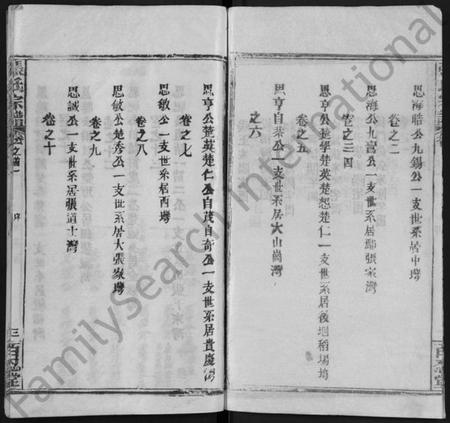 思海皓公九錫公一支世系居中塆
卷之二
思海公九宫公一支世系居鄢張家灣
卷之三四
思亨公楚學楚英楚恕楚仁一支世系居後垻稻場塆
卷之五
思亨自葵公一支世系居大山崗灣
之六
思亨公楚英楚仁公自茂自奇公一支世系居貴慶灣
卷之七
思敏公一支世系居西塆
卷之八
思敏公楚秀公一支世系居大張家塆
卷之九
思誠公一支世系居張道士灣
卷之十
張氏宗譜
卷之首一
三
百忍堂
FamilySearch International